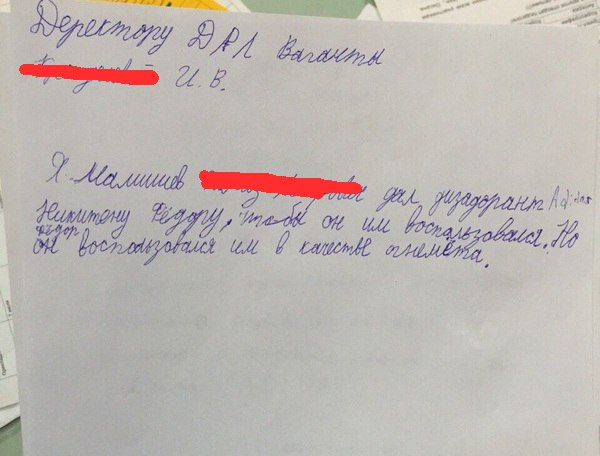 Деректору ДОЛ Ваганты
И. В.
Я. Малишев дал дизадорант Adidas
Никитену Фёдору, что бы он им воспользовался. Но
Фъдор
он воспользовался им в качестве огнемёта.